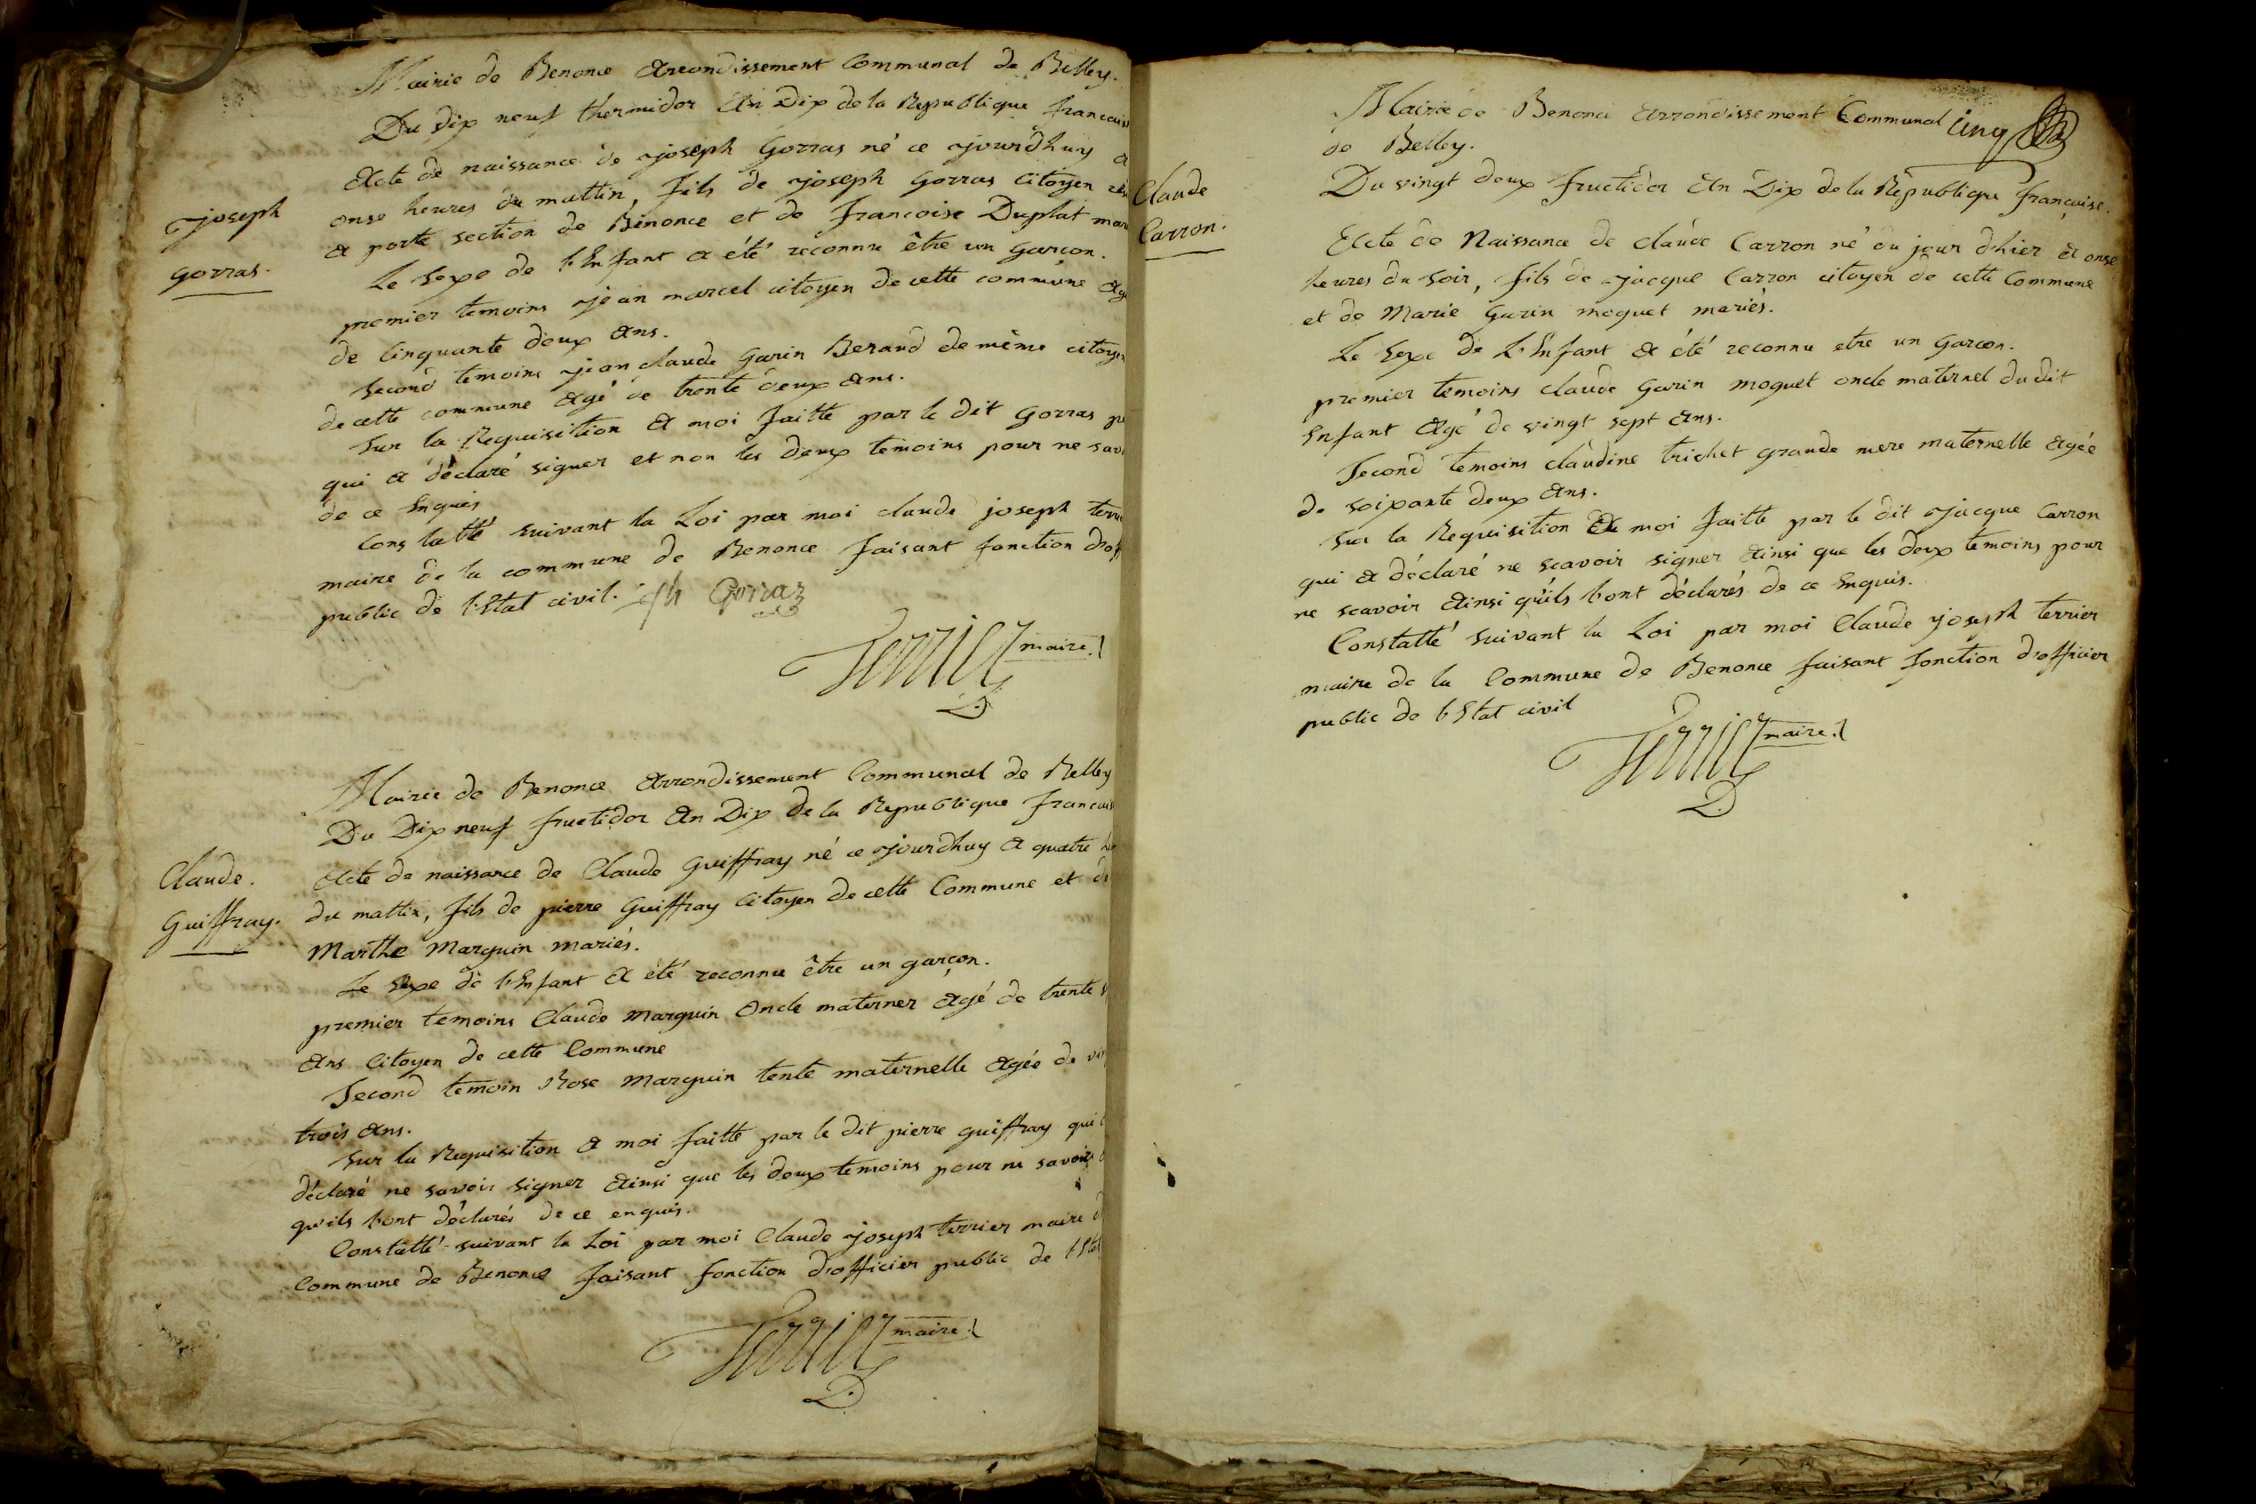 Mairie de Benonce Arrondissement Communal de Belley.
Du dix neuf thermidor An Dix de la Republique francais
Acte de naissance de joseph Gorras né ce jourd'huy a
onse heures du mattin, fils de joseph Gorras Citoyen
a porte section de Bénonce et de francoise Duplat mar
joseph
gorras.
Le Sexe de l'Enfant a été reconnu être un Garçon.
premier temoins jean marcel citoyen de cette commune Agé
de Cinquante deux Ans.
Second temoins jean claude Garin Beraud de même citoyen
de cette commune Agé de trente deux ans.
Sur la Requisition a moi faitte par le dit Gorras
qui a déclaré signer et non les deux temoins pour ne sav
de ce Enquis
Constatté suivant la Loi par moi claude joseph terri
maire de la commune de Benonce faisant fonction d'off
public de l'Etat civil. jh Gorraz
Terrier maire
Mairie de Benonce Arrondissement Communal de Belley
Du Dix neuf fructidor An Dix de la Republique francais
Acte de naissance de Claude Guiffray né ce jourdhuy a quatre
du mattin, fils de pierre Guiffray Citoyen de cette Commune et de
Marthe Marguin mariés.
Claude.
Guiffray.
Le Sexe de l'Enfant a été reconnu être un garçon.
premier temoins Claude marguin Oncle materner agé de trente
Ans Citoyen de cette Commune
Second temoin Rose marguin tente maternelle Agée de vin
trois Ans.
Sur la Requisition a moi faitte par le dit pierre guiffray qui
déclaré ne savoir signer Ainsi que les deux temoins pour ne savoir
qu'ils l'ont déclarés de ce enquis.
Constatté suivant la Loi par moi Claude joseph terrier maire d
Commune de Benonce faisant fonction d'officier public de l'Etat
Terrier maire
Mairie de Benonce Arrondissement Communal Cinq
de Belley.
Du vingt deux fructidor An Dix de la République française.
Claude
Carron.
Acte de Naissance de claude Carron né du jour d'hier a onse
heures du soir, fils de jacque Carron citoyen de cette Commune
et de Marie Garin moquet mariés.
Le Sexe de L'Enfant a été reconnu etre un Garcon.
premier temoins claude Garin moquet oncle maternel du dit
Enfant Agé de vingt sept Ans.
Second temoins claudine trichet grande mere maternelle Agée
de soixante deux Ans.
Sur la Requisition A moi faitte par le dit jacque Carron
qui a déclaré ne scavoir signer Ainsi que les deux temoins pour
ne scavoir Ainsi qu'ils l'ont déclarés de ce Enquis.
Constatté suivant la Loi par moi Claude joseph terrier
maire de la Commune de Benonce faisant fonction d'officier
public de l'Etat civil
Terrier maire